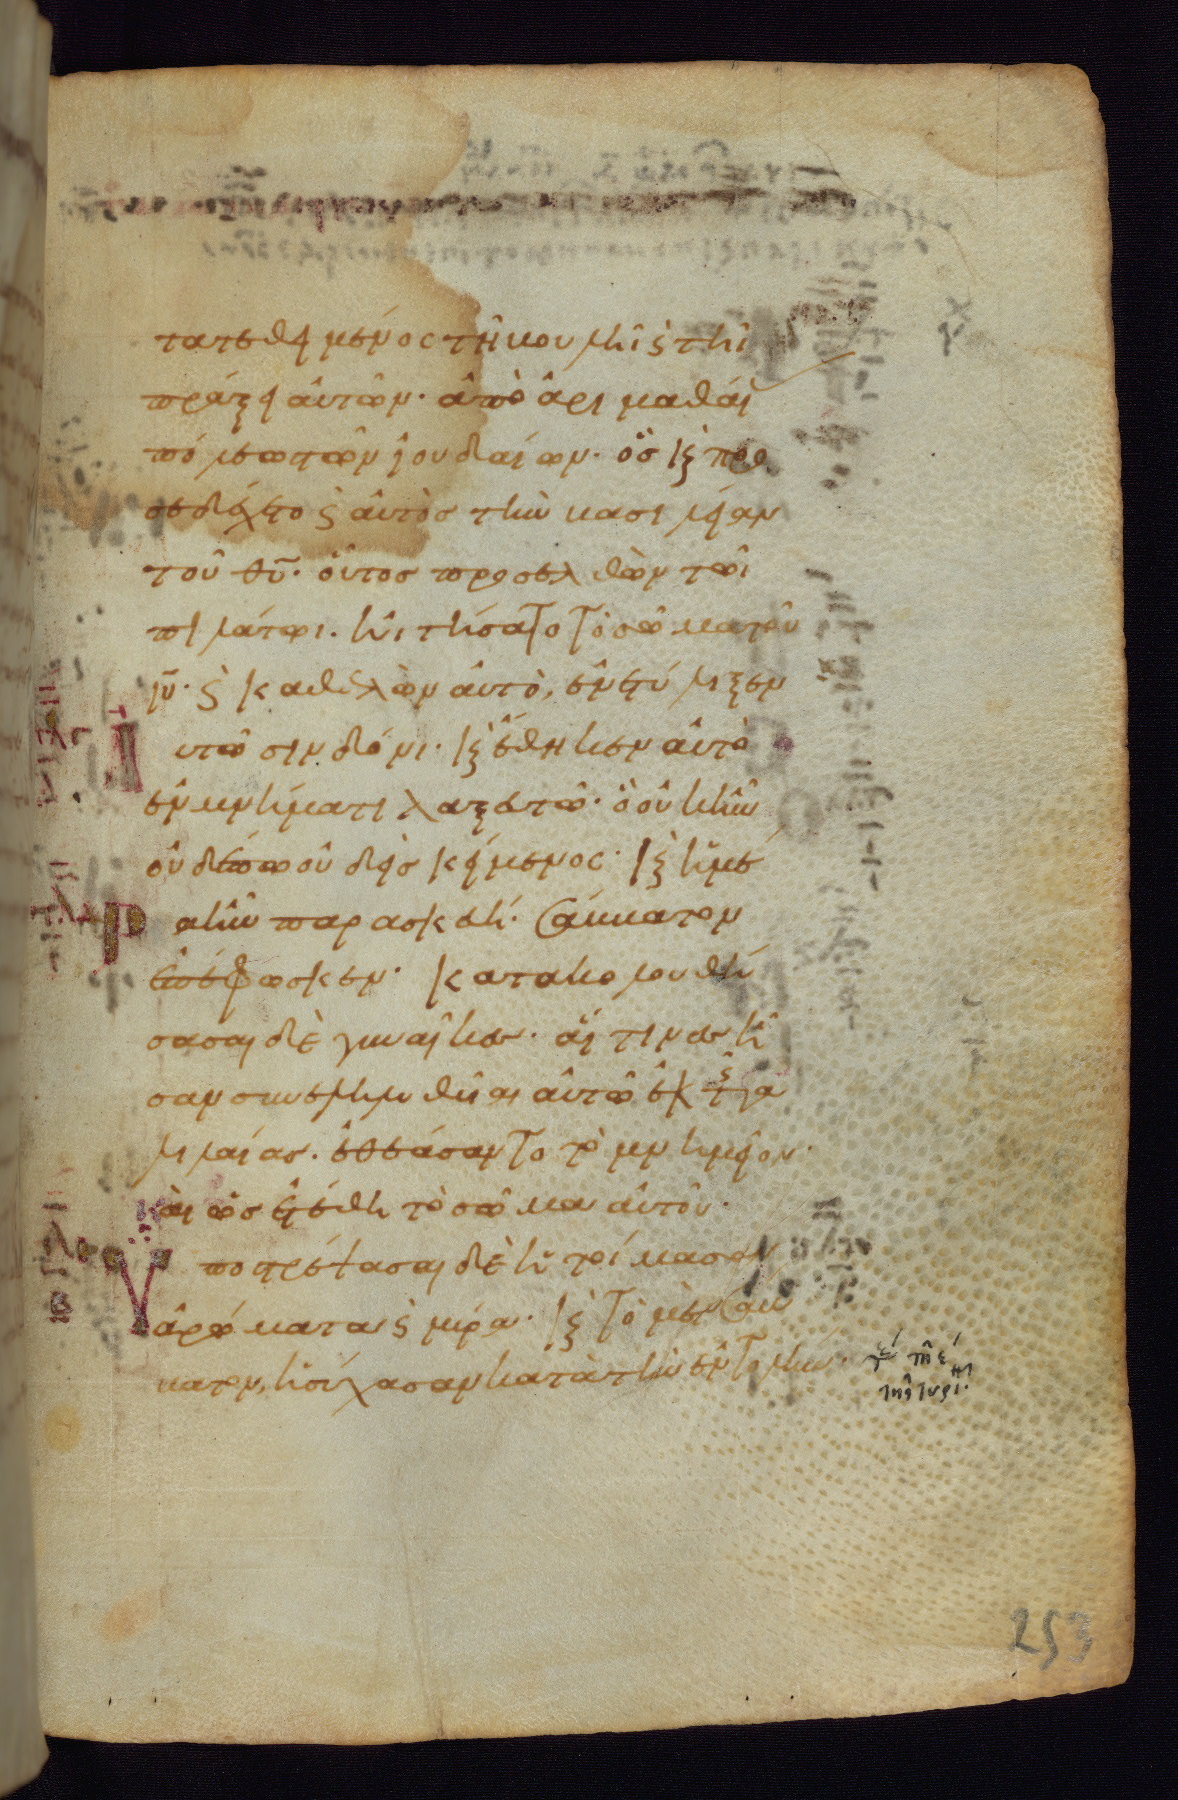 τατεθειμένος τῆ βουλῆι καὶ τῆι
πράξει αὐτῶν· ἀπὸ ἀριμαθαί
πόλεως τῶν ἰουδαίων· ὃς καὶ προ
σεδέχετο καὶ αὐτὸς τὴν βασιλείαν
τοῦ θυ̅· οὗτος προσελθὼν τῶι
πιλάτωι· ἠιτήσατο τὸ σῶμα τοῦ
ιυ̅· καὶ καθελὼν αὐτὸ, ἐνετύλιξεν
υτῶ σινδόνι· καὶ ἔθηκεν αὐτὸ
ἐν μνήματι λαξευτῶ· ὃ οὐκ ἦν
οὐδέπω οὐδεὶς κείμενος· καὶ ἡμέ
ρα ἦν παρασκευή· σάββατον
ἐπέφωσκεν· κατακολουθή
σασαι δὲ γυναῖκες· αἵτινες ἦ
σαν συνεληλυθῦαι αὐτῶ ἐκ τῆς γα
λιλαίας· ἐθεάσαντο τὸ μνημεῖον·
καὶ ὡς ἐτέθη τὸ σῶμα αὐτοῦ·
Ὑποστρέψασαι δὲ ἡτοίμασαν
ἀρώματα καὶ μύρα· καὶ τὸ μὲν σάβ
βατον, ἡσύχασαν κατὰ τὴν ἐντολήν·
253